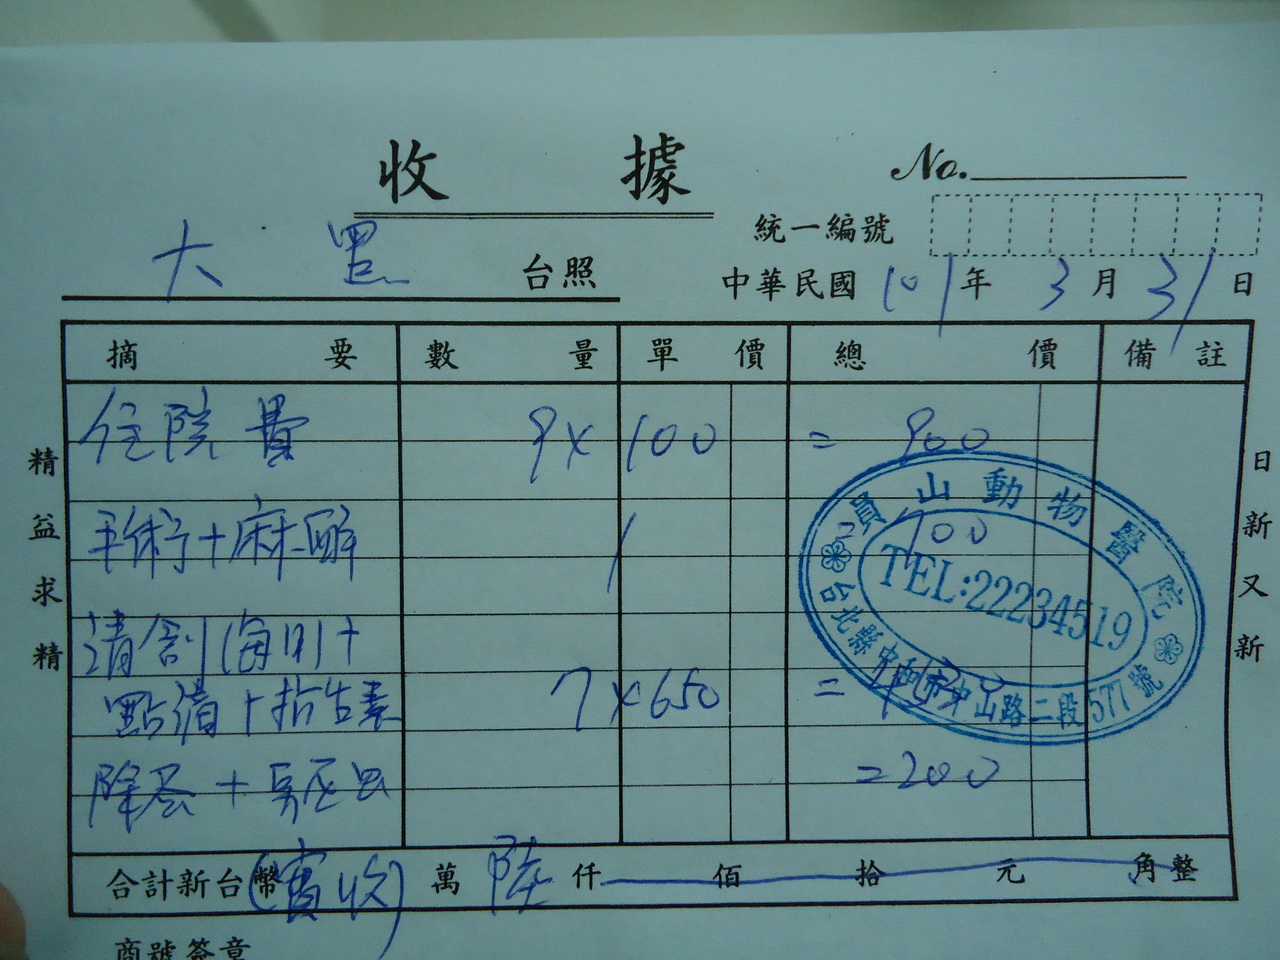 收據
No.
統一編號
大 台照
中華民國 101 年 3 月 31 日
摘要 數量 單價 總價 備註
住院費 9 × 100 = 900
手術+麻醉 1 = 700
清創(每日)+
點滴+抗生素 7 × 650 =
除蚤+驅蟲 = 200
合計新台幣 (實收) 萬 陸 仟 佰 拾 元 角整
精益求精
日新又新
員山動物醫院
TEL:22234519
台北縣中和市中山路二段577號
商號簽章